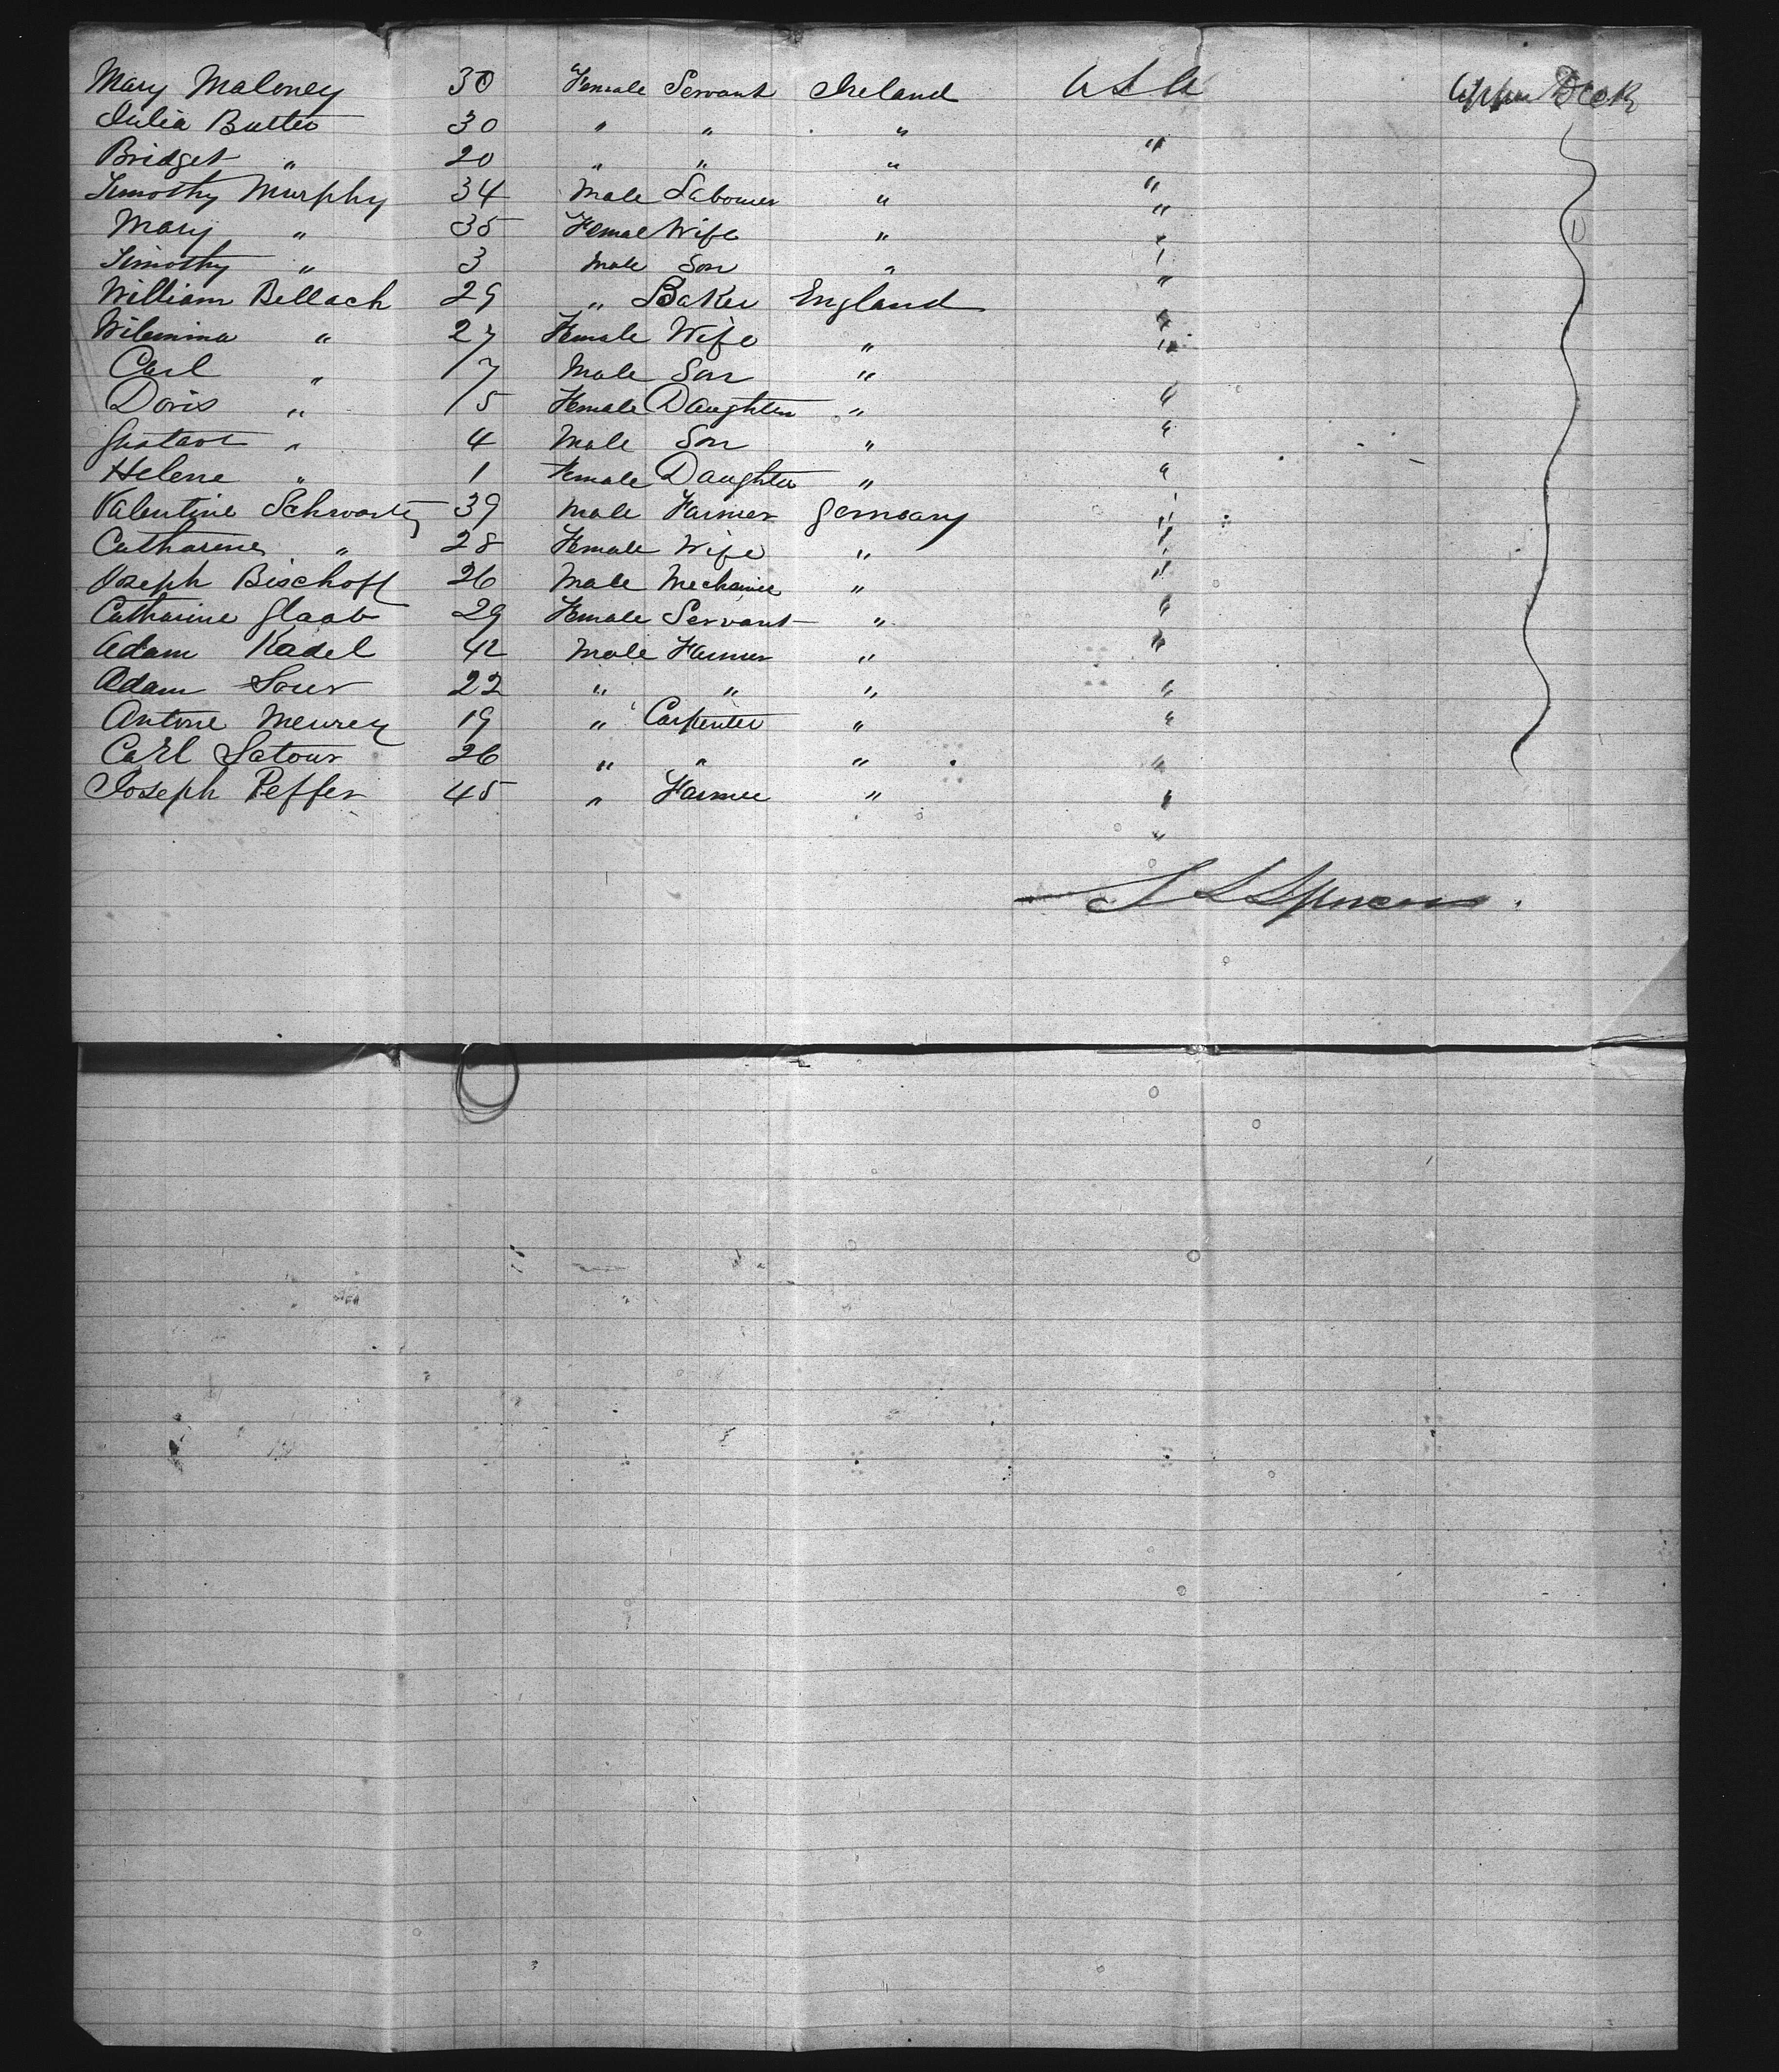 Mary Maloney 30 Female Servant Ireland U S A Upper Deck
Julia Butter 30 " " " "
Bridget " 20 " " " "
Timothy Murphy 34 Male Labourer " "
Mary " 35 Female Wife " "
Timothy " 3 Male Son " "
William Bellach 29 " Baker England "
Wilemina " 27 Female Wife " "
Carl " 7 Male Son " "
Doris " 5 Female Daughter " "
Gustave " 4 Male Son " "
Helene " 1 Female Daughter " "
Valentine Schwartz 39 Male Farmer Germany "
Catharine " 28 Female Wife " "
Joseph Bischoff 26 Male Mechanic " "
Catharine Glaab 29 Female Servant " "
Adam Kadel 42 Male Farmer " "
Adam Sour 22 " " " "
Antone Meurey 19 " Carpenter " "
Carl Latour 26 " " " "
Joseph Peffer 45 " Farmer " "